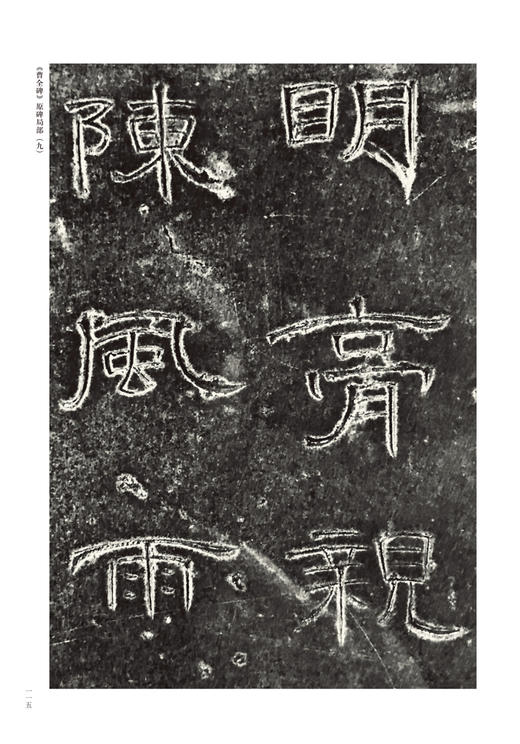 眀膏親
陳風雨
《曹全碑》原碑局部（九）
一一五